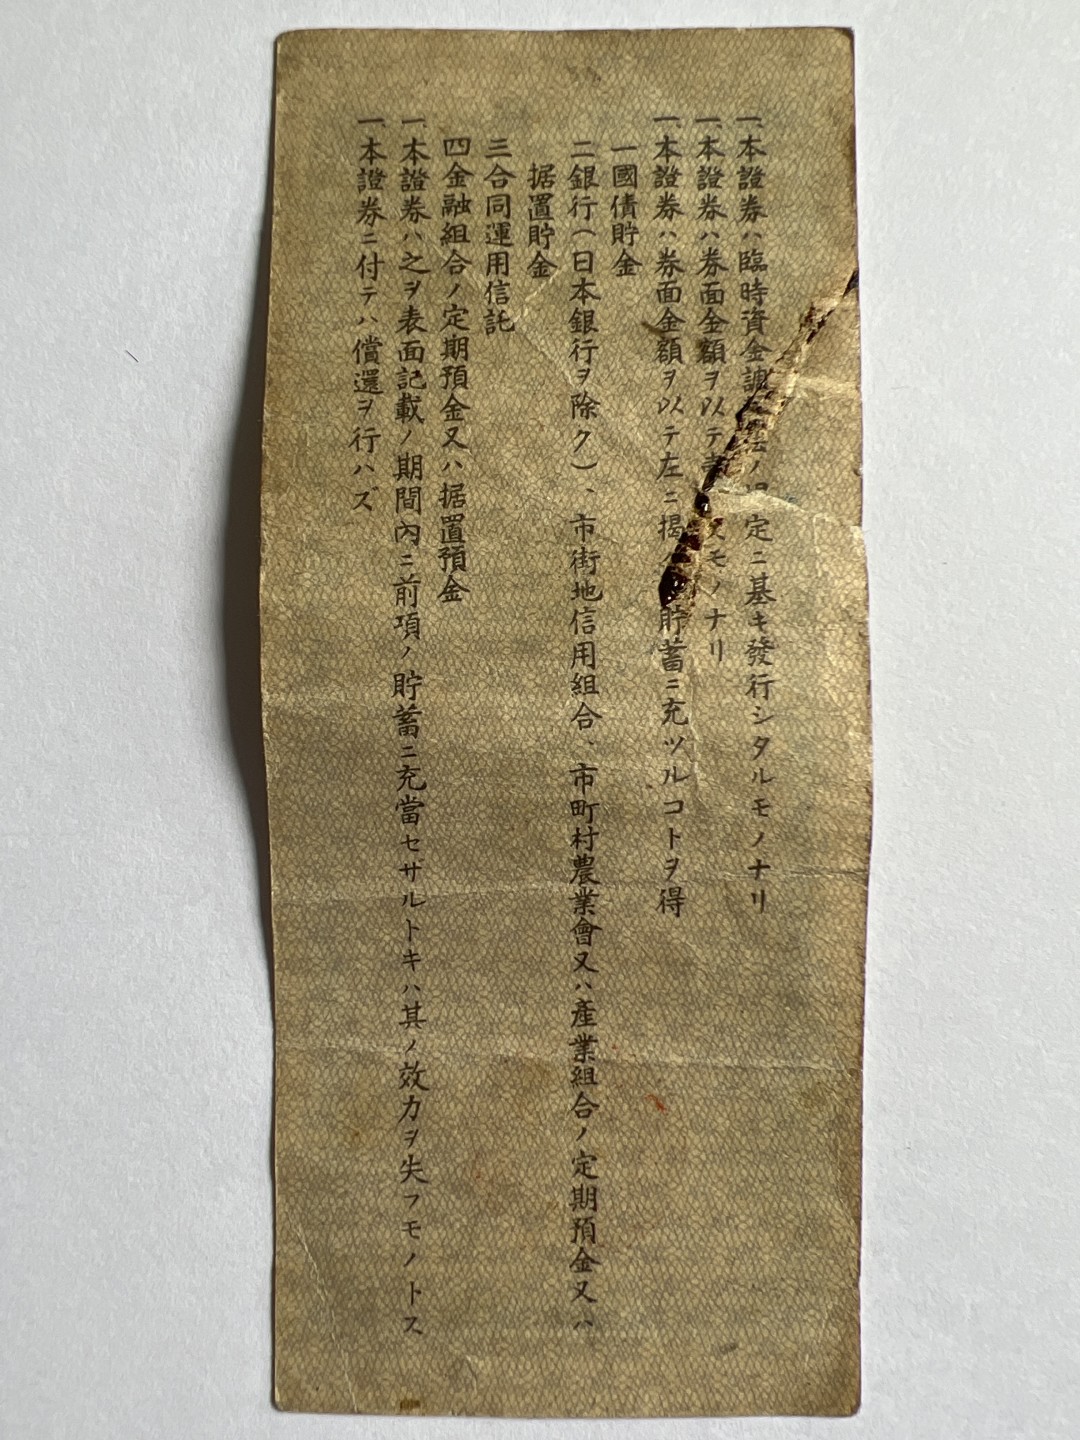 一、本證券ハ臨時資金調 定ニ基キ發行シタルモノナリ
一、本證券ハ券面金額ヲ以テ モノナリ
一、本證券ハ券面金額ヲ以テ左ニ揭 貯蓄ニ充ツルコトヲ得
一國債貯金
二銀行（日本銀行ヲ除ク）、市街地信用組合、市町村農業會又ハ產業組合ノ定期預金又ハ
据置貯金
三合同運用信託
四金融組合ノ定期預金又ハ据置預金
一、本證券ハ之ヲ表面記載ノ期間內ニ前項ノ貯蓄ニ充當セザルトキハ其ノ效力ヲ失フモノトス
一、本證券ニ付テハ償還ヲ行ハズ